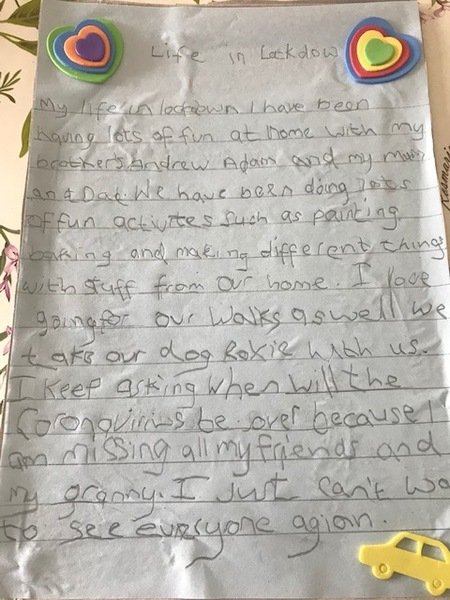 Life in Lockdow
My life in lockdown I have been
having lots of fun at home with my
brother's Andrew Adam and my mum
and Dad. We have been doing lots
of fun activites such as painting
baking and making different things
with stuff from our home. I love
going for our walks as well we
take our dog Roxie with us.
I keep asking when will the
Coronavirius be over because I
am missing all my friends and
my granny. I just can't wa
to see everyone agian.
Rosemari